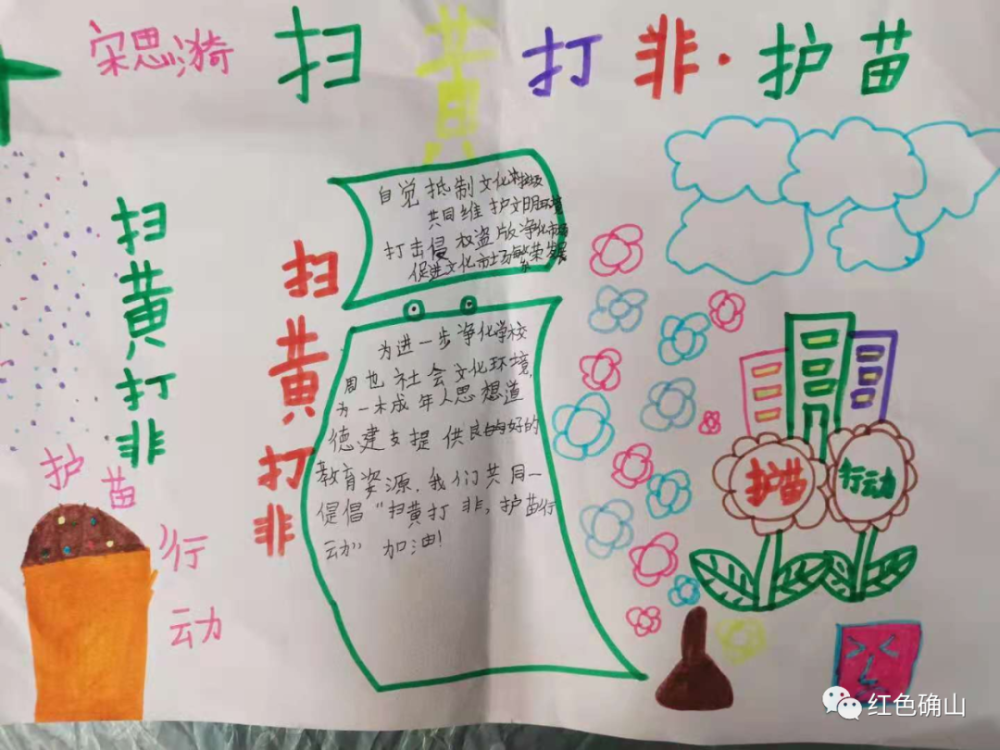 宋思漪
扫黄打非·护苗
扫黄打非
护苗
行动
扫黄打非
自觉抵制文化垃圾
共同维护文明环境
打击侵权盗版净化市场
促进文化市场繁荣发展
为进一步净化学校
周边社会文化环境,
为一未成年人思想道
德建支提供良的好的
教育资源,我们共同一
促倡“扫黄打非,护苗行
动”加油!
护苗
行动
红色确山